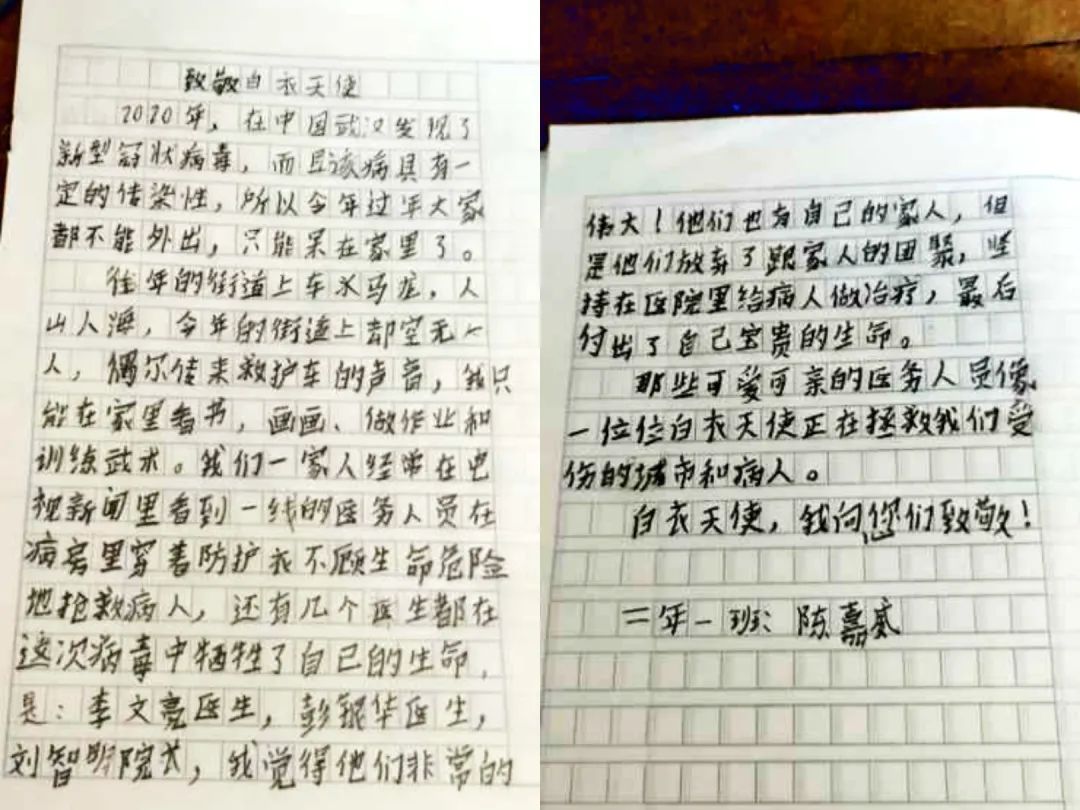 致敬白衣天使
2020年，在中国武汉发现了
新型冠状病毒，而且该病具有一
定的传染性，所以今年过年大家
都不能外出，只能呆在家里了。
往年的街道上车水马龙，人
山人海，今年的街道上却空无一
人，偶尔传来救护车的声音，我只
能在家里看书，画画、做作业和
训练武术。我们一家人经常在电
视新闻里看到一线的医务人员在
病房里穿着防护衣不顾生命危险
地抢救病人，还有几个医生都在
这次病毒中牺牲了自己的生命，
是：李文亮医生，彭银华医生，
刘智明院长，我觉得他们非常的
伟大！他们也有自己的家人，但
是他们放弃了跟家人的团聚，坚
持在医院里给病人做治疗，最后
付出了自己宝贵的生命。
那些可爱可亲的医务人员像
一位位白衣天使正在拯救我们受
伤的城市和病人。
白衣天使，我向您们致敬！
二年一班：陈嘉威